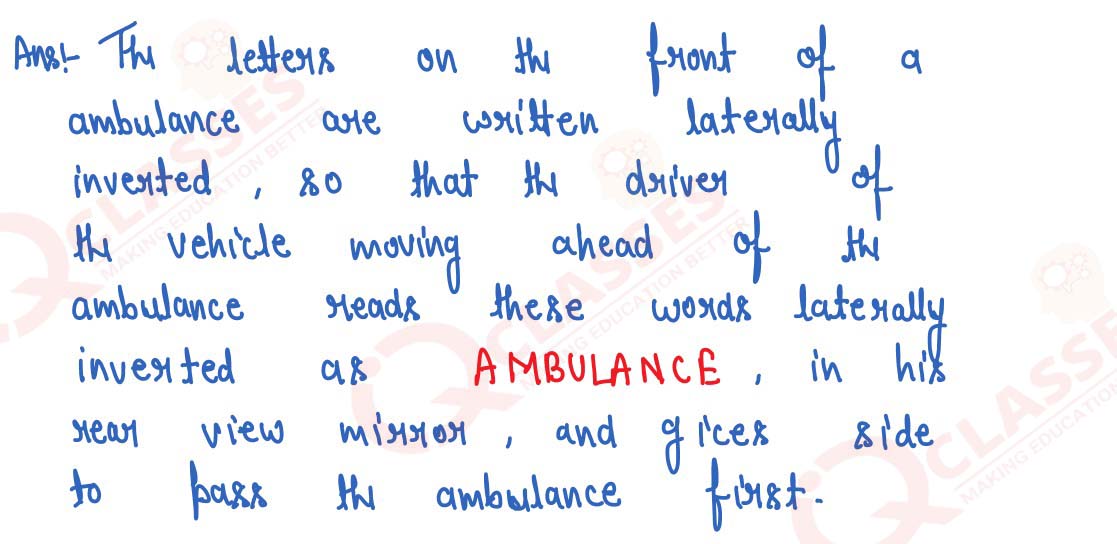 Ans:- The letters on the front of a
ambulance are written laterally
inverted, so that the driver of
the vehicle moving ahead of the
ambulance reads these words laterally
inverted as AMBULANCE, in his
rear view mirror, and gices side
to pass the ambulance first.
CLASSES
MAKING EDUCATION BETTER
CLASSES
MAKING EDUCATION BETTER
CLASSES
MAKING EDUCATION